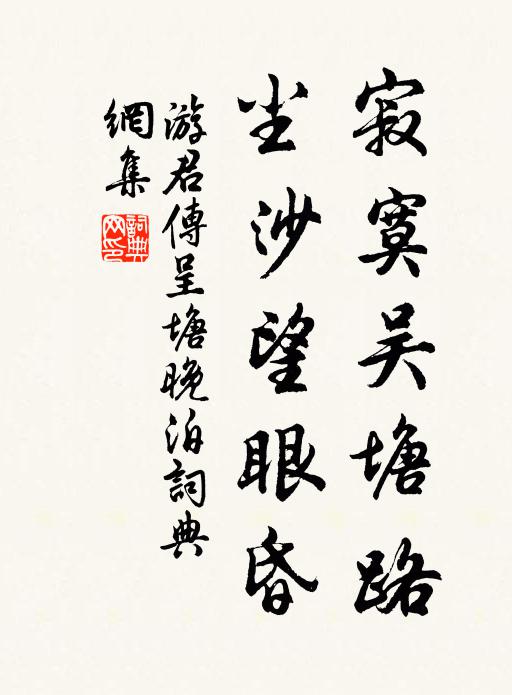 寂寞吴塘路
尘沙望眼昏
游君傳呈塘晚泊詞典
網集
詞典
网印